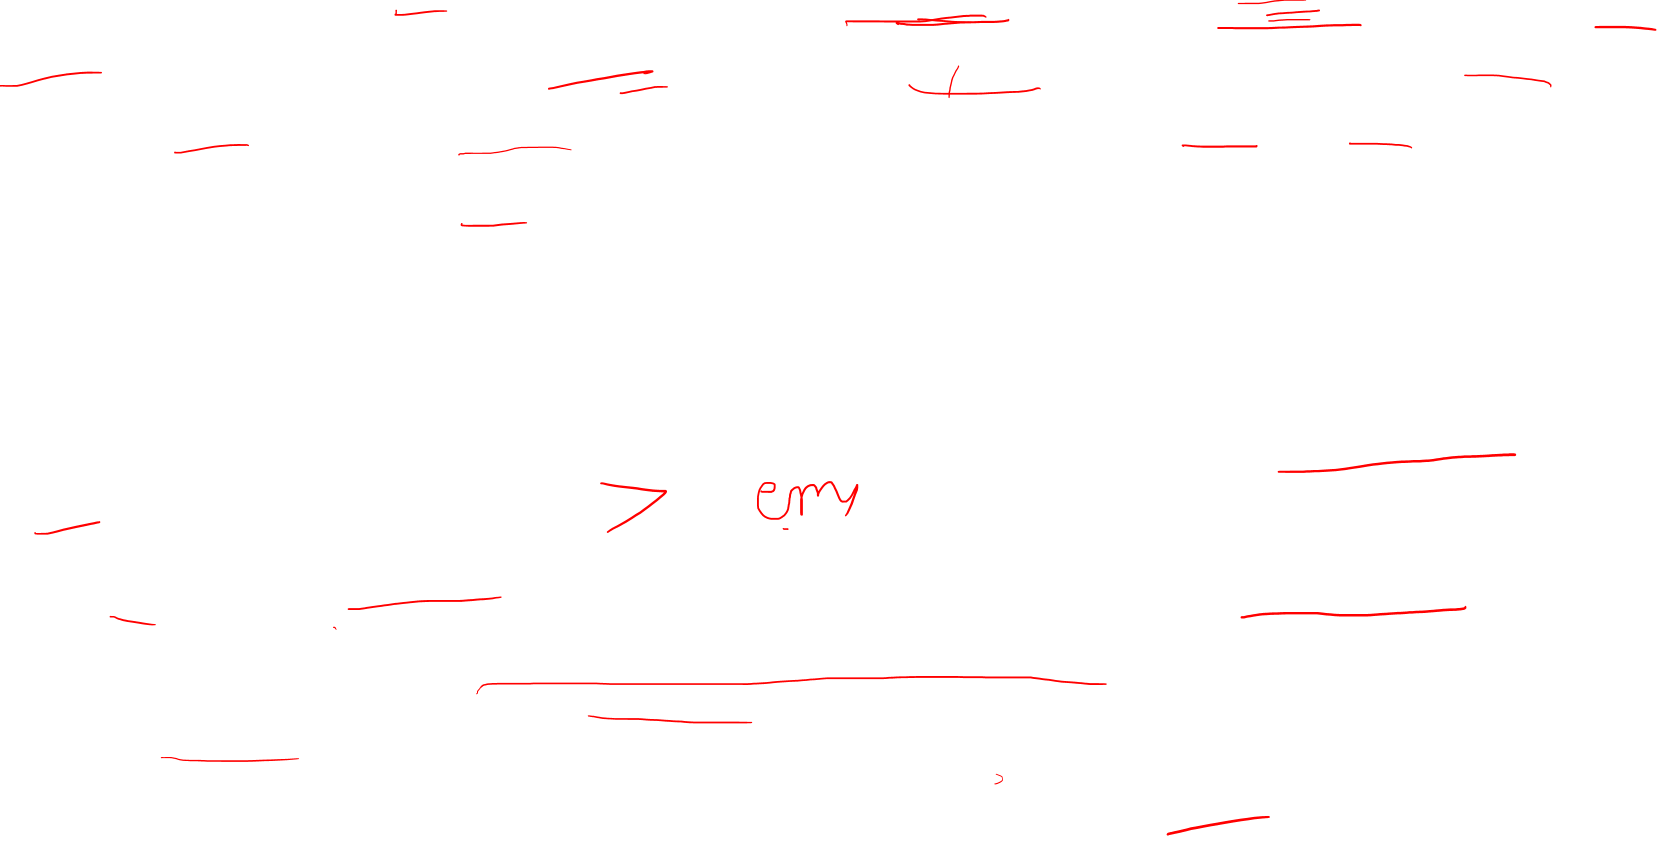 > emy